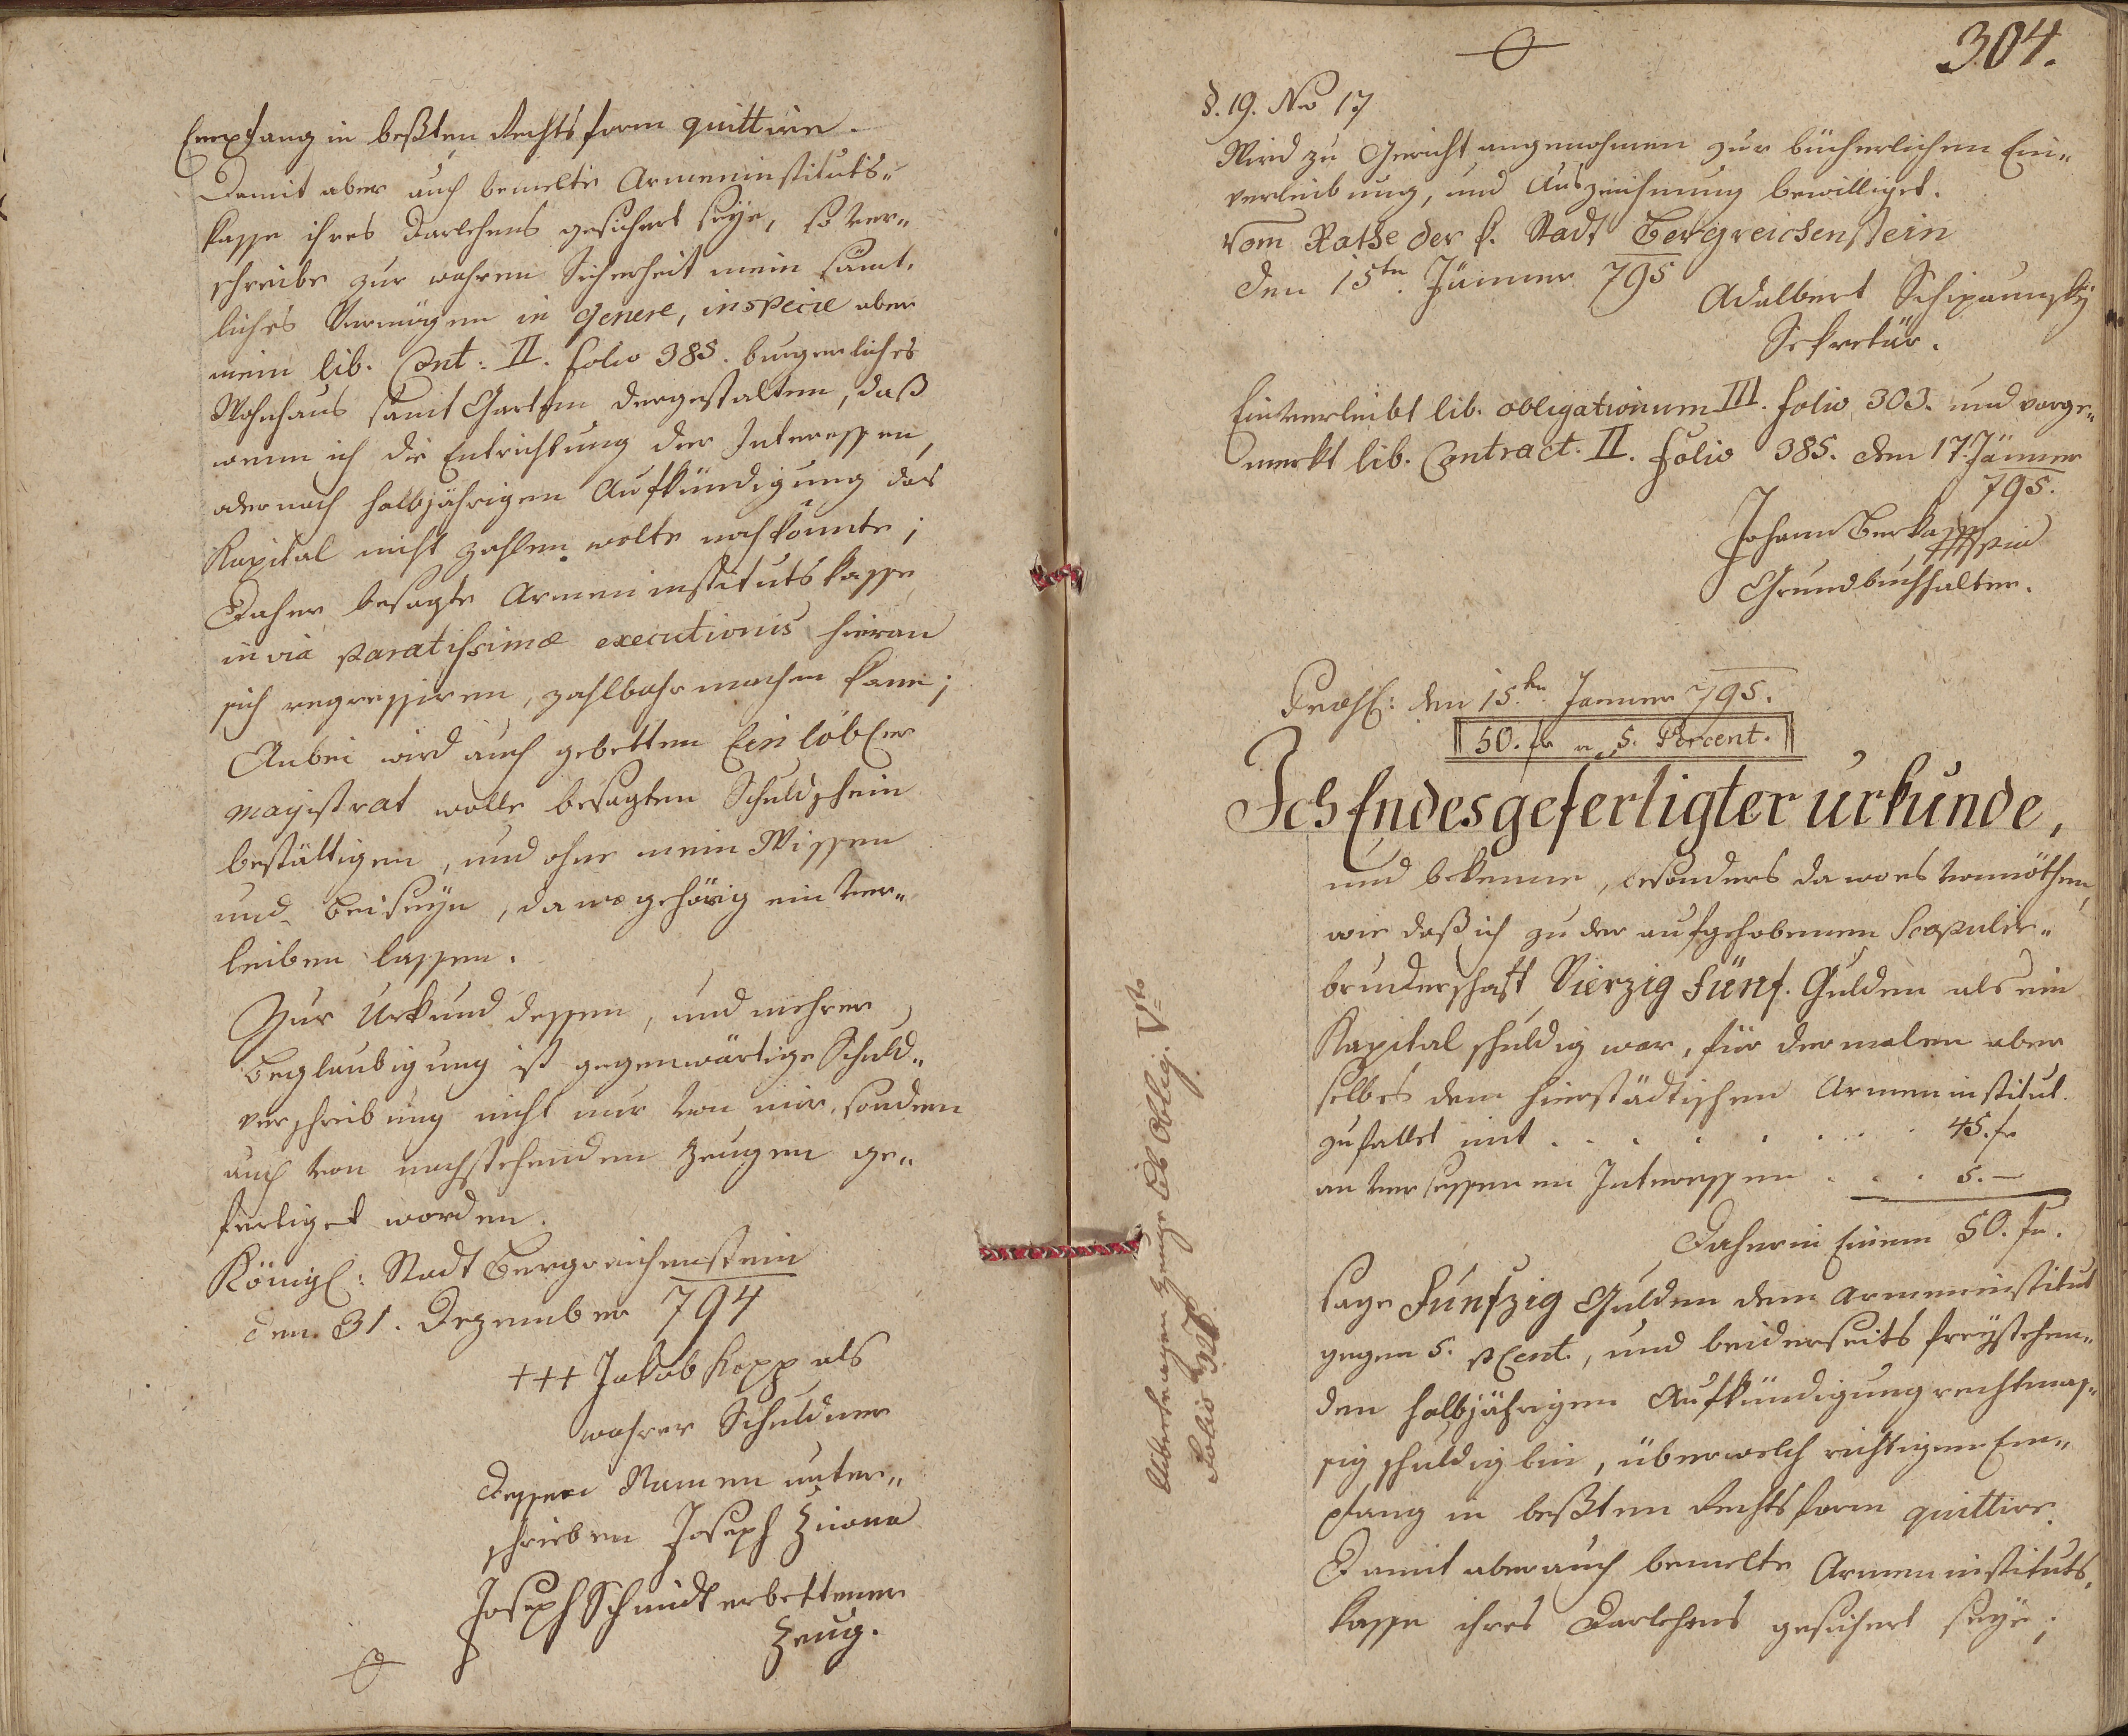 Empfang in beßten Rechtsform quittire.
Damit aber auch bemelte Armeninstituts„
kasse ihres Darlehens gesichert seÿe, so ver„
schreibe zur wahren Sicherheit mein sämt„
liches Vermögen in Genere, in specie aber
mein lib. Cont: II. folio 385. burgerliches
Wohnhaus samt Garten dergestalten, daß
wenn ich die Entrichtung der Interessen,
oder nach halbjährigen Aufkündigung das
Kapital nicht zahlen wolte noch könnte;
Daher besagte Armeninstitutskasse
in via paratissimæ executionis hieran
sich regressiren, zahlbahr machen kann;
Anbei wird auch gebetten Ein löbl:er
Magistrat wolle besagten Schuldschein
bestättigen, und ohne mein Wissen
und Beiseÿn, da wo gehörig ein ver„
leiben lassen.
Zur Urkund dessen, und mehrer
Beglaubigung ist gegenwärtige Schuld„
verschreibung nicht nur von mir, sondern
auch von nachstehenden Zeugen ge„
fertiget worden.
Königl: Stadt Bergreichenstein
den 31. Dezember 794
+++ Jakob Kopp als
wahrer Schuldner
dessen Namen unter„
schrieben Joseph
Joseph Schmidt erbettener
Zeug.
304.
§. 19. No 17
Wird zu Gericht angenohmen zur bücherlichen Ein„
verleibung, und Auszeichnung bewilliget.
Vom Rathe der k. Stadt Bergreichenstein
den 15ten. Jänner 795
Adalbert Schipaunskÿ
Sekretär.
Einverleibt lib. obligationum III. folio 303. und vorge„
merkt lib. Contract. II. folio 385. den 17. Jänner
795.
Johann Berka
Grundbuchhalter.
Præs: den 15.ten Jänner 795.
50. fr a 5. Percent.
Ich Endesgefertigter urkunde,
und bekenne, besonders da wo es vonnöthen,
wie daß ich zu der aufgehobenen Scapulir„
bruderschaft Vierzig Fünf. Gulden als ein
Kapital schuldig war, für dermalen aber
selbes dem hierstädtischen Armeninstitut
zufallet mit . . . . . . . . 45. fr
an versessenen Interessen . . . 5. —
Daher in Einem 50. fr.
sage Funfzig Gulden dem Armeninstitut
gegen 5. pCent., und beiderseits freÿstehen„
den halbjährigen Aufkündigung rechtmäs„
sig schuldig bin, über welch richtigen Em„
pfang in beßten Rechtsform quittire.
Damit aber auch bemelte Armeninstituts„
kasse ihres Darlehens gesichert seÿe;
Uibertragen Zeuge Lib Oblig. Vto
Folio